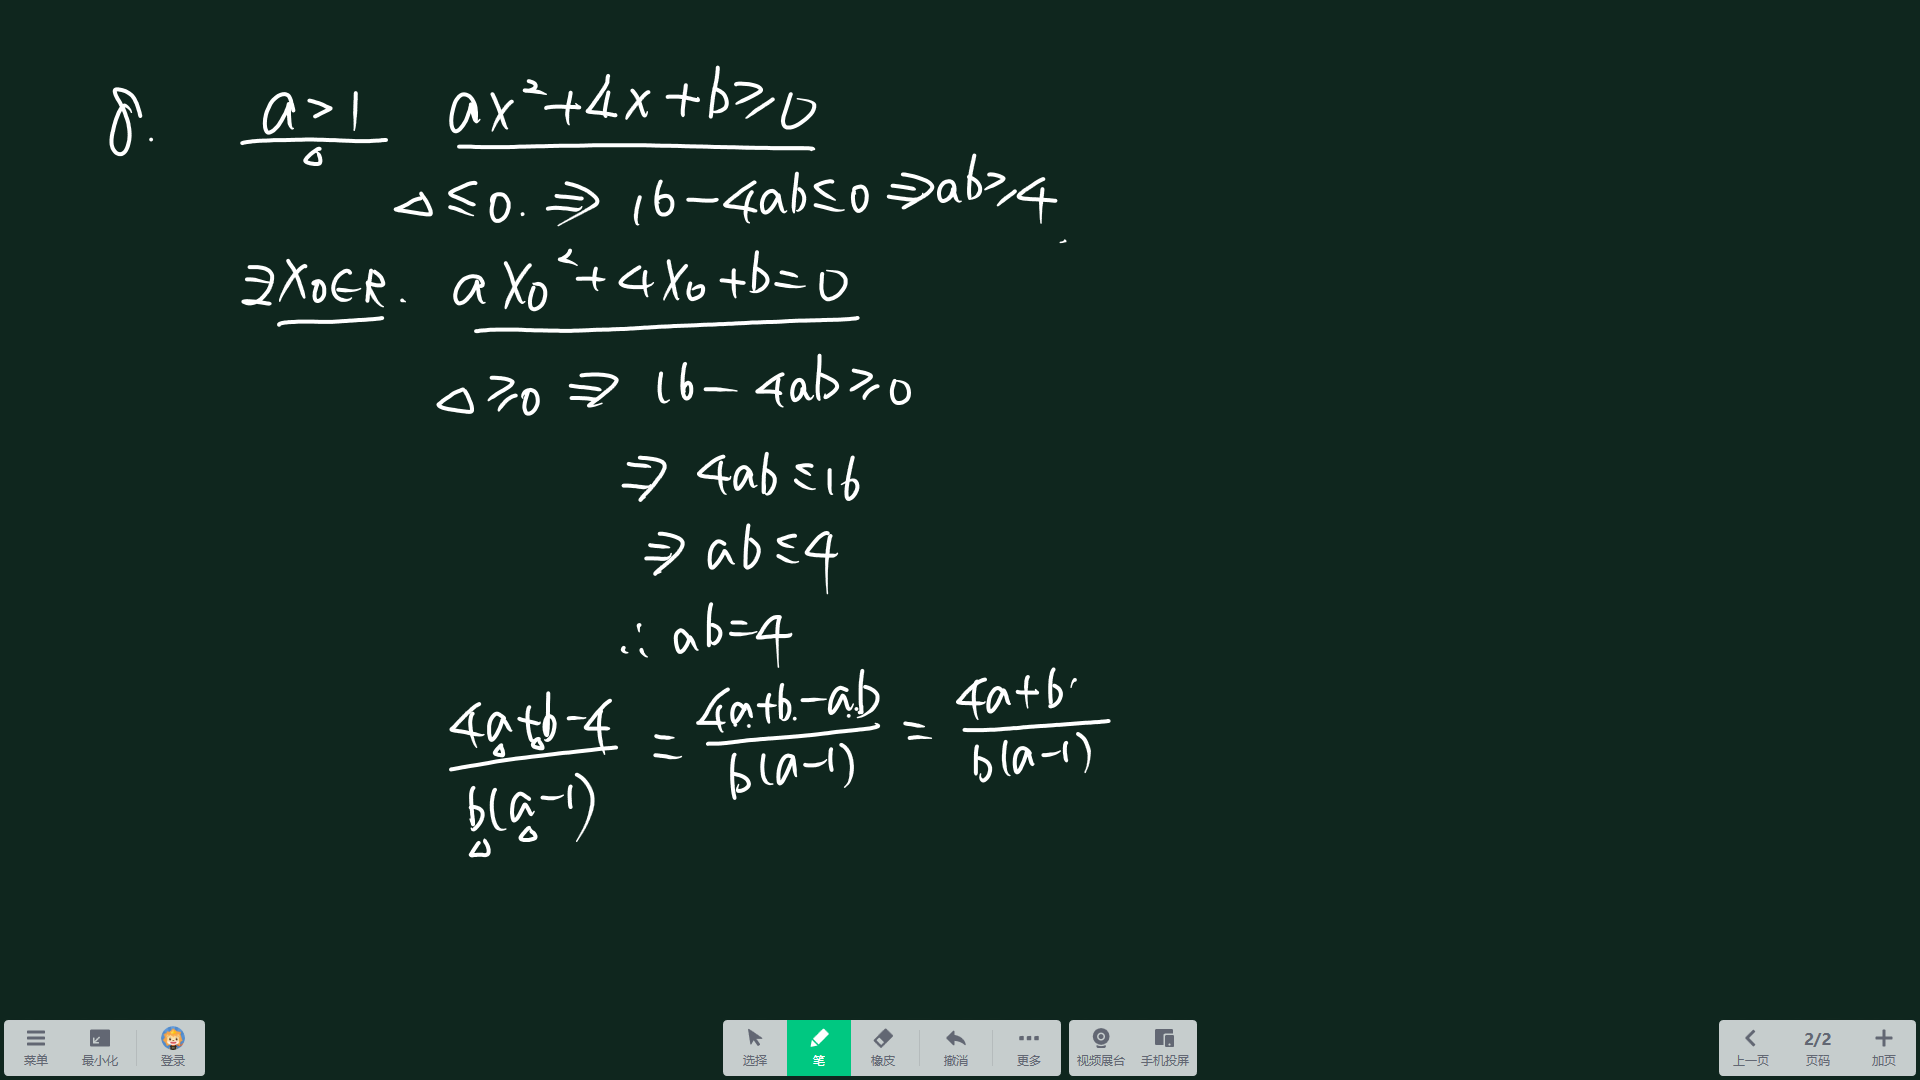 8. a>1 ax²+4x+b≥0
△≤0. ⇒ 16-4ab≤0 ⇒ab≥4
∃x₀∈R. ax₀²+4x₀+b=0
△≥0 ⇒ 16-4ab≥0
⇒ 4ab≤16
⇒ ab≤4
∴ ab=4
(4a+b-4)/(b(a-1)) = (4a+b-ab)/(b(a-1)) = (4a+b)/(b(a-1))
菜单 最小化 登录 选择 笔 橡皮 撤消 更多 视频展台 手机投屏 上一页 2/2 页码 加页